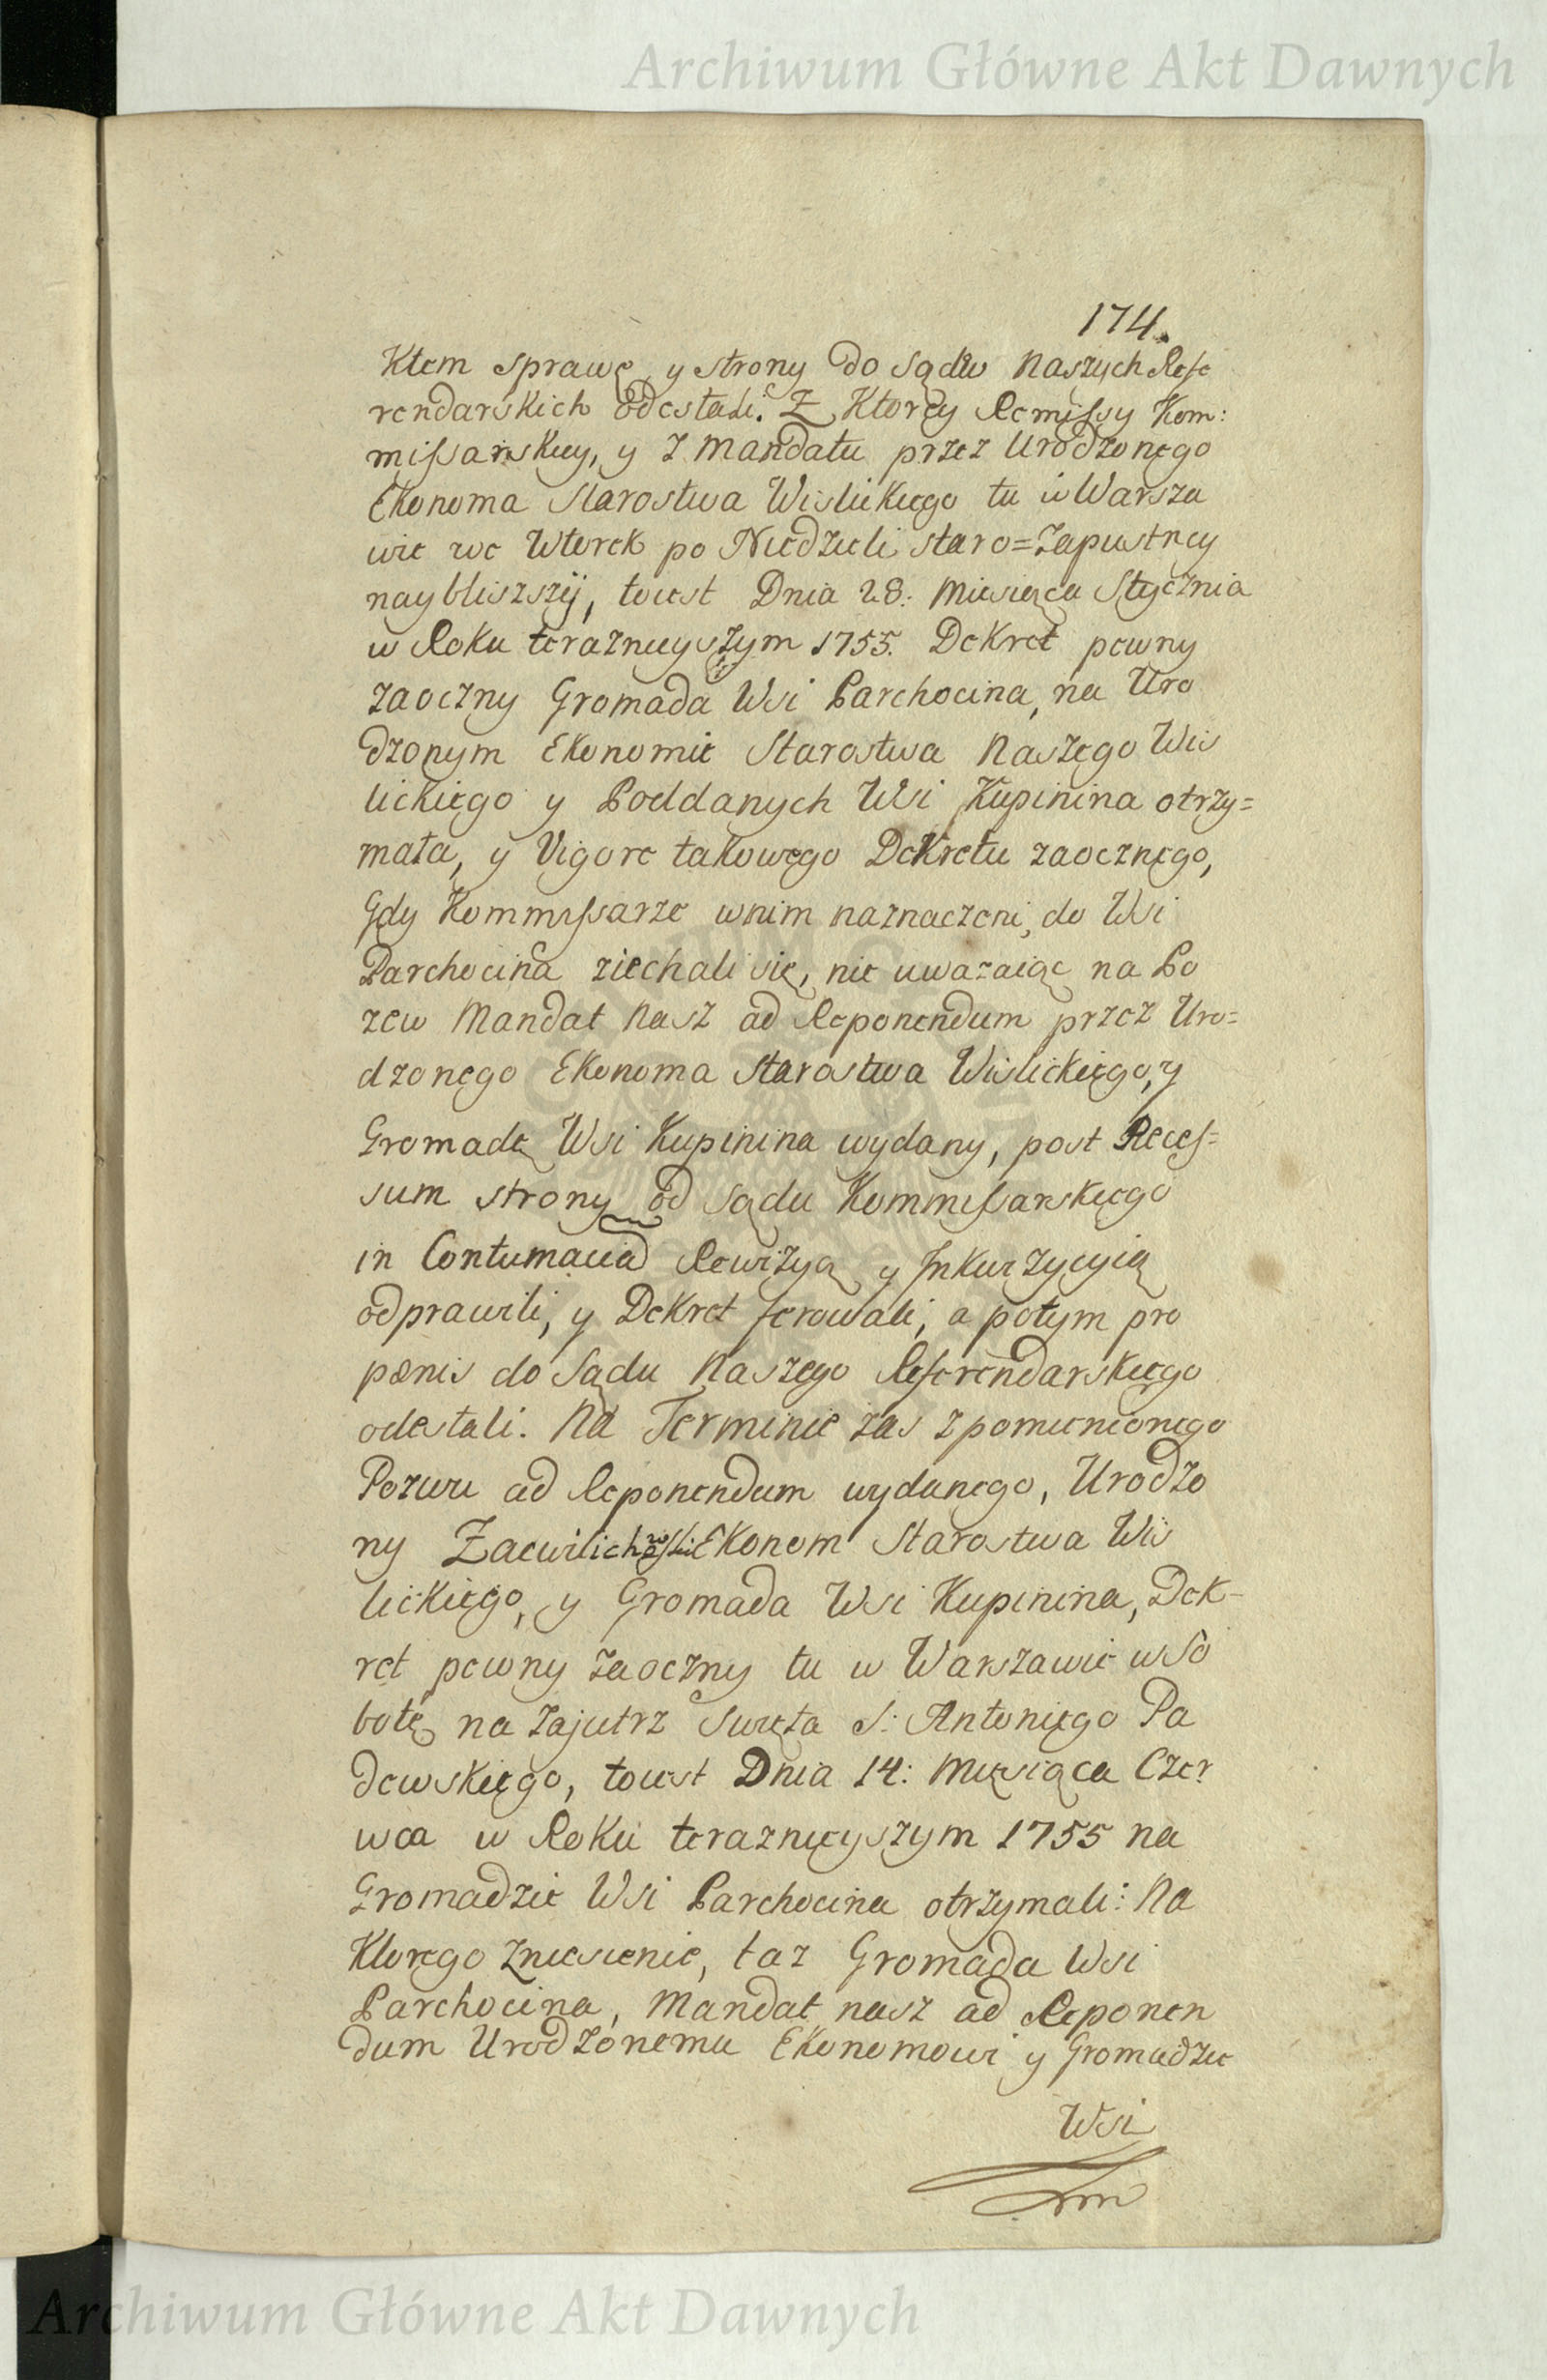 Archiwum Główne Akt Dawnych
174.
Ktem sprawę y strony do sądw Naszych Refe
rendarskich odesłali. Z Ktorey Remissy Kom:
missarskiey, y z Mandatu przez Urodzonego
Ekonoma Starostwa Wislickiego tu w Warsza
wie we Wtorek po Niedzieli staro=Zapustney
naybliszszy, toiest Dnia 28: Miesiąca Stycznia
w Roku teraznieyszym 1755. Dekret pewny
zaoczny Gromada Wsi Parchocina, na Uro
dzonym Ekonomie Starostwa Naszego Wis
lickiego y Poddanych Wsi Kupinina otrzy=
mała, y Vigore takowego Dekretu zaocznego,
Gdy Kommissarze wnim naznaczeni, do Wsi
Parchocina ziechali się, nie uwazaiąc na Po
zew Mandat Nasz ad Reponendum przez Uro=
dzonego Ekonoma Starostwa Wislickiego, y
Gromadę Wsi Kupinina wydany, post Reces=
sum strony od Sądu Kommissarskiego
in Contumaciā Rewizyą y Inkwizycyią
odprawili, y Dekret ferowali, a potym pro
pœnis do Sądu Naszego Referendarskiego
odesłali. Na Terminie zas z pomienionego
Pozwu ad Reponendum wydanego, Urodzo
ny Zacwilichowski Ekonom Starostwa Wis
lickiego, y Gromada Wsi Kupinina, Dek-
ret pewny zaoczny tu w Warszawie w So
botę na zajutrz Swięta S: Antoniego Pa
dewskiego, toiest Dnia 14: Miesiąca Czer
wca w Roku teraznieyszym 1755 na
Gromadzie Wsi Parchocina otrzymali: Na
Ktorego zniesienie, taz Gromada Wsi
Parchocina, Mandat nasz ad Reponen
dum Urodzonemu Ekonomowi y Gromadzie
Wsi
Archiwum Główne Akt Dawnych